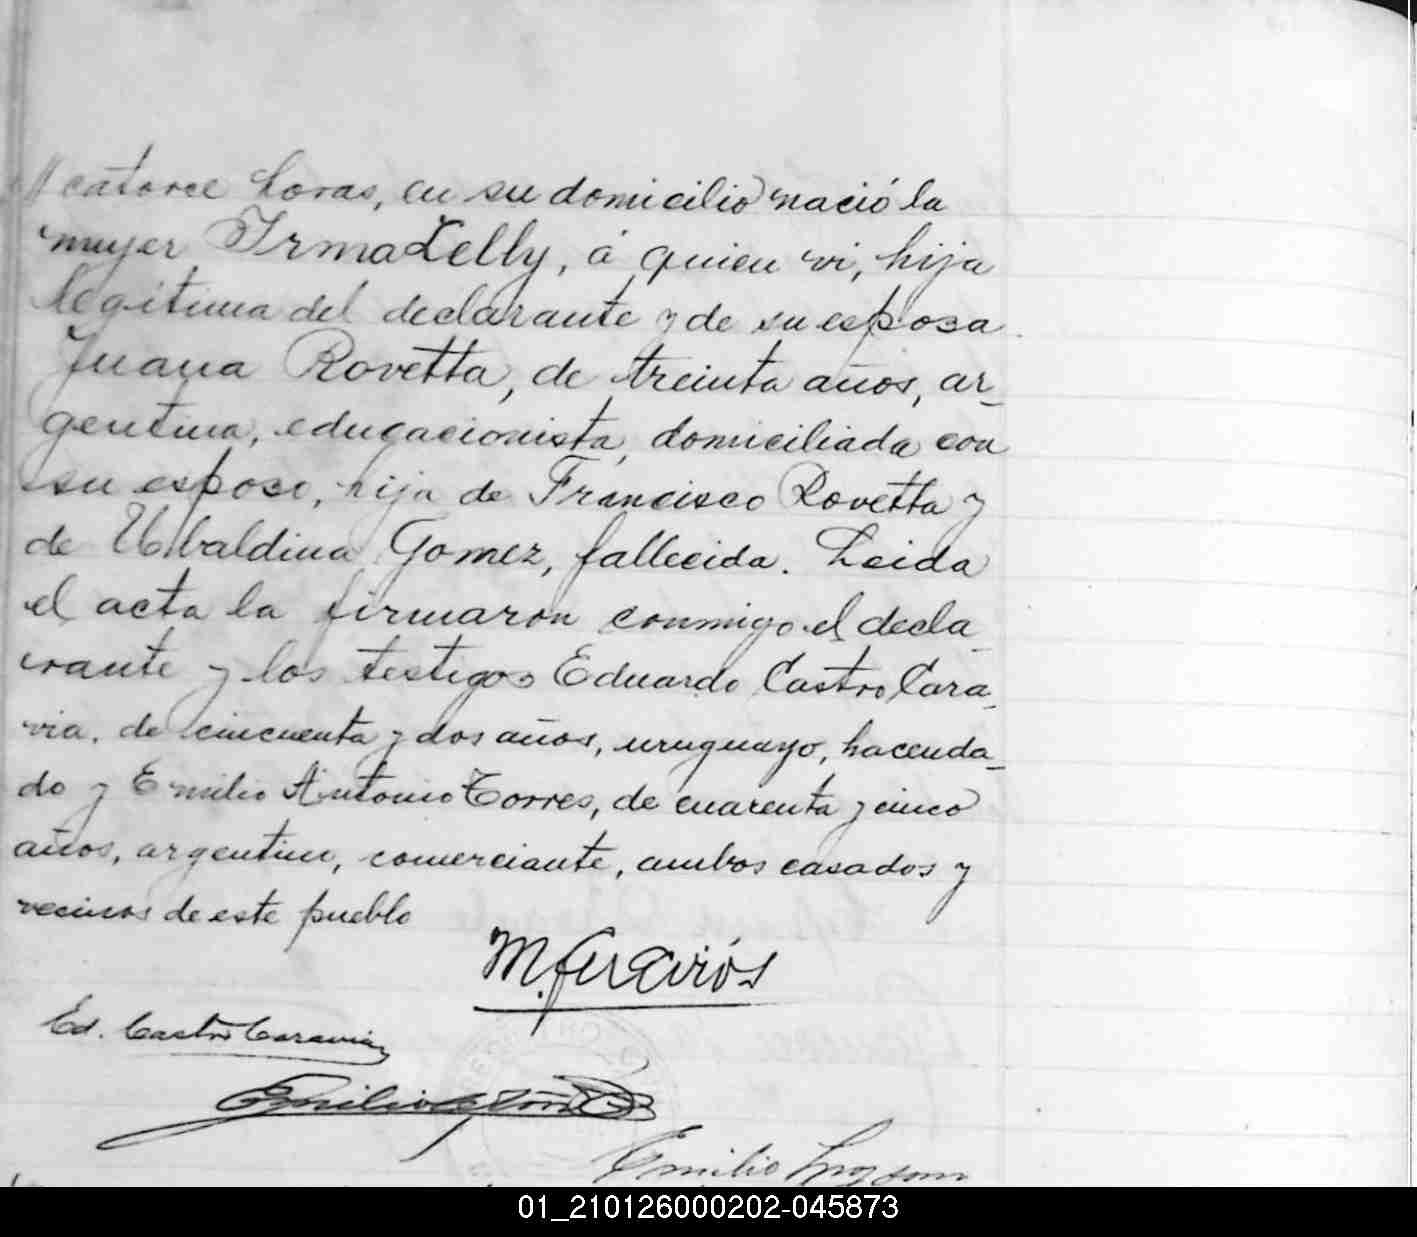 // catorce horas, en su domicilio nació la
mujer Irma Nelly, á quien vi, hija
legítima del declarante y de su esposa
Juana Rovetta, de treinta años, ar_
gentina, educacionista, domiciliada con
su esposo, hija de Francisco Rovetta y
de Ubaldina Gomez, fallecida. Leida
el acta la firmaron conmigo el decla_
rante y los testigos Eduardo Castro Cara_
via, de cincuenta y dos años, uruguayo, hacenda_
do y Emilio Antonio Torres, de cuarenta y cinco
años, argentino, comerciante, ambos casados y
vecinos de este pueblo
M.
Ed. Castro Caravia
Emilio
Emilio
01_210126000202-045873